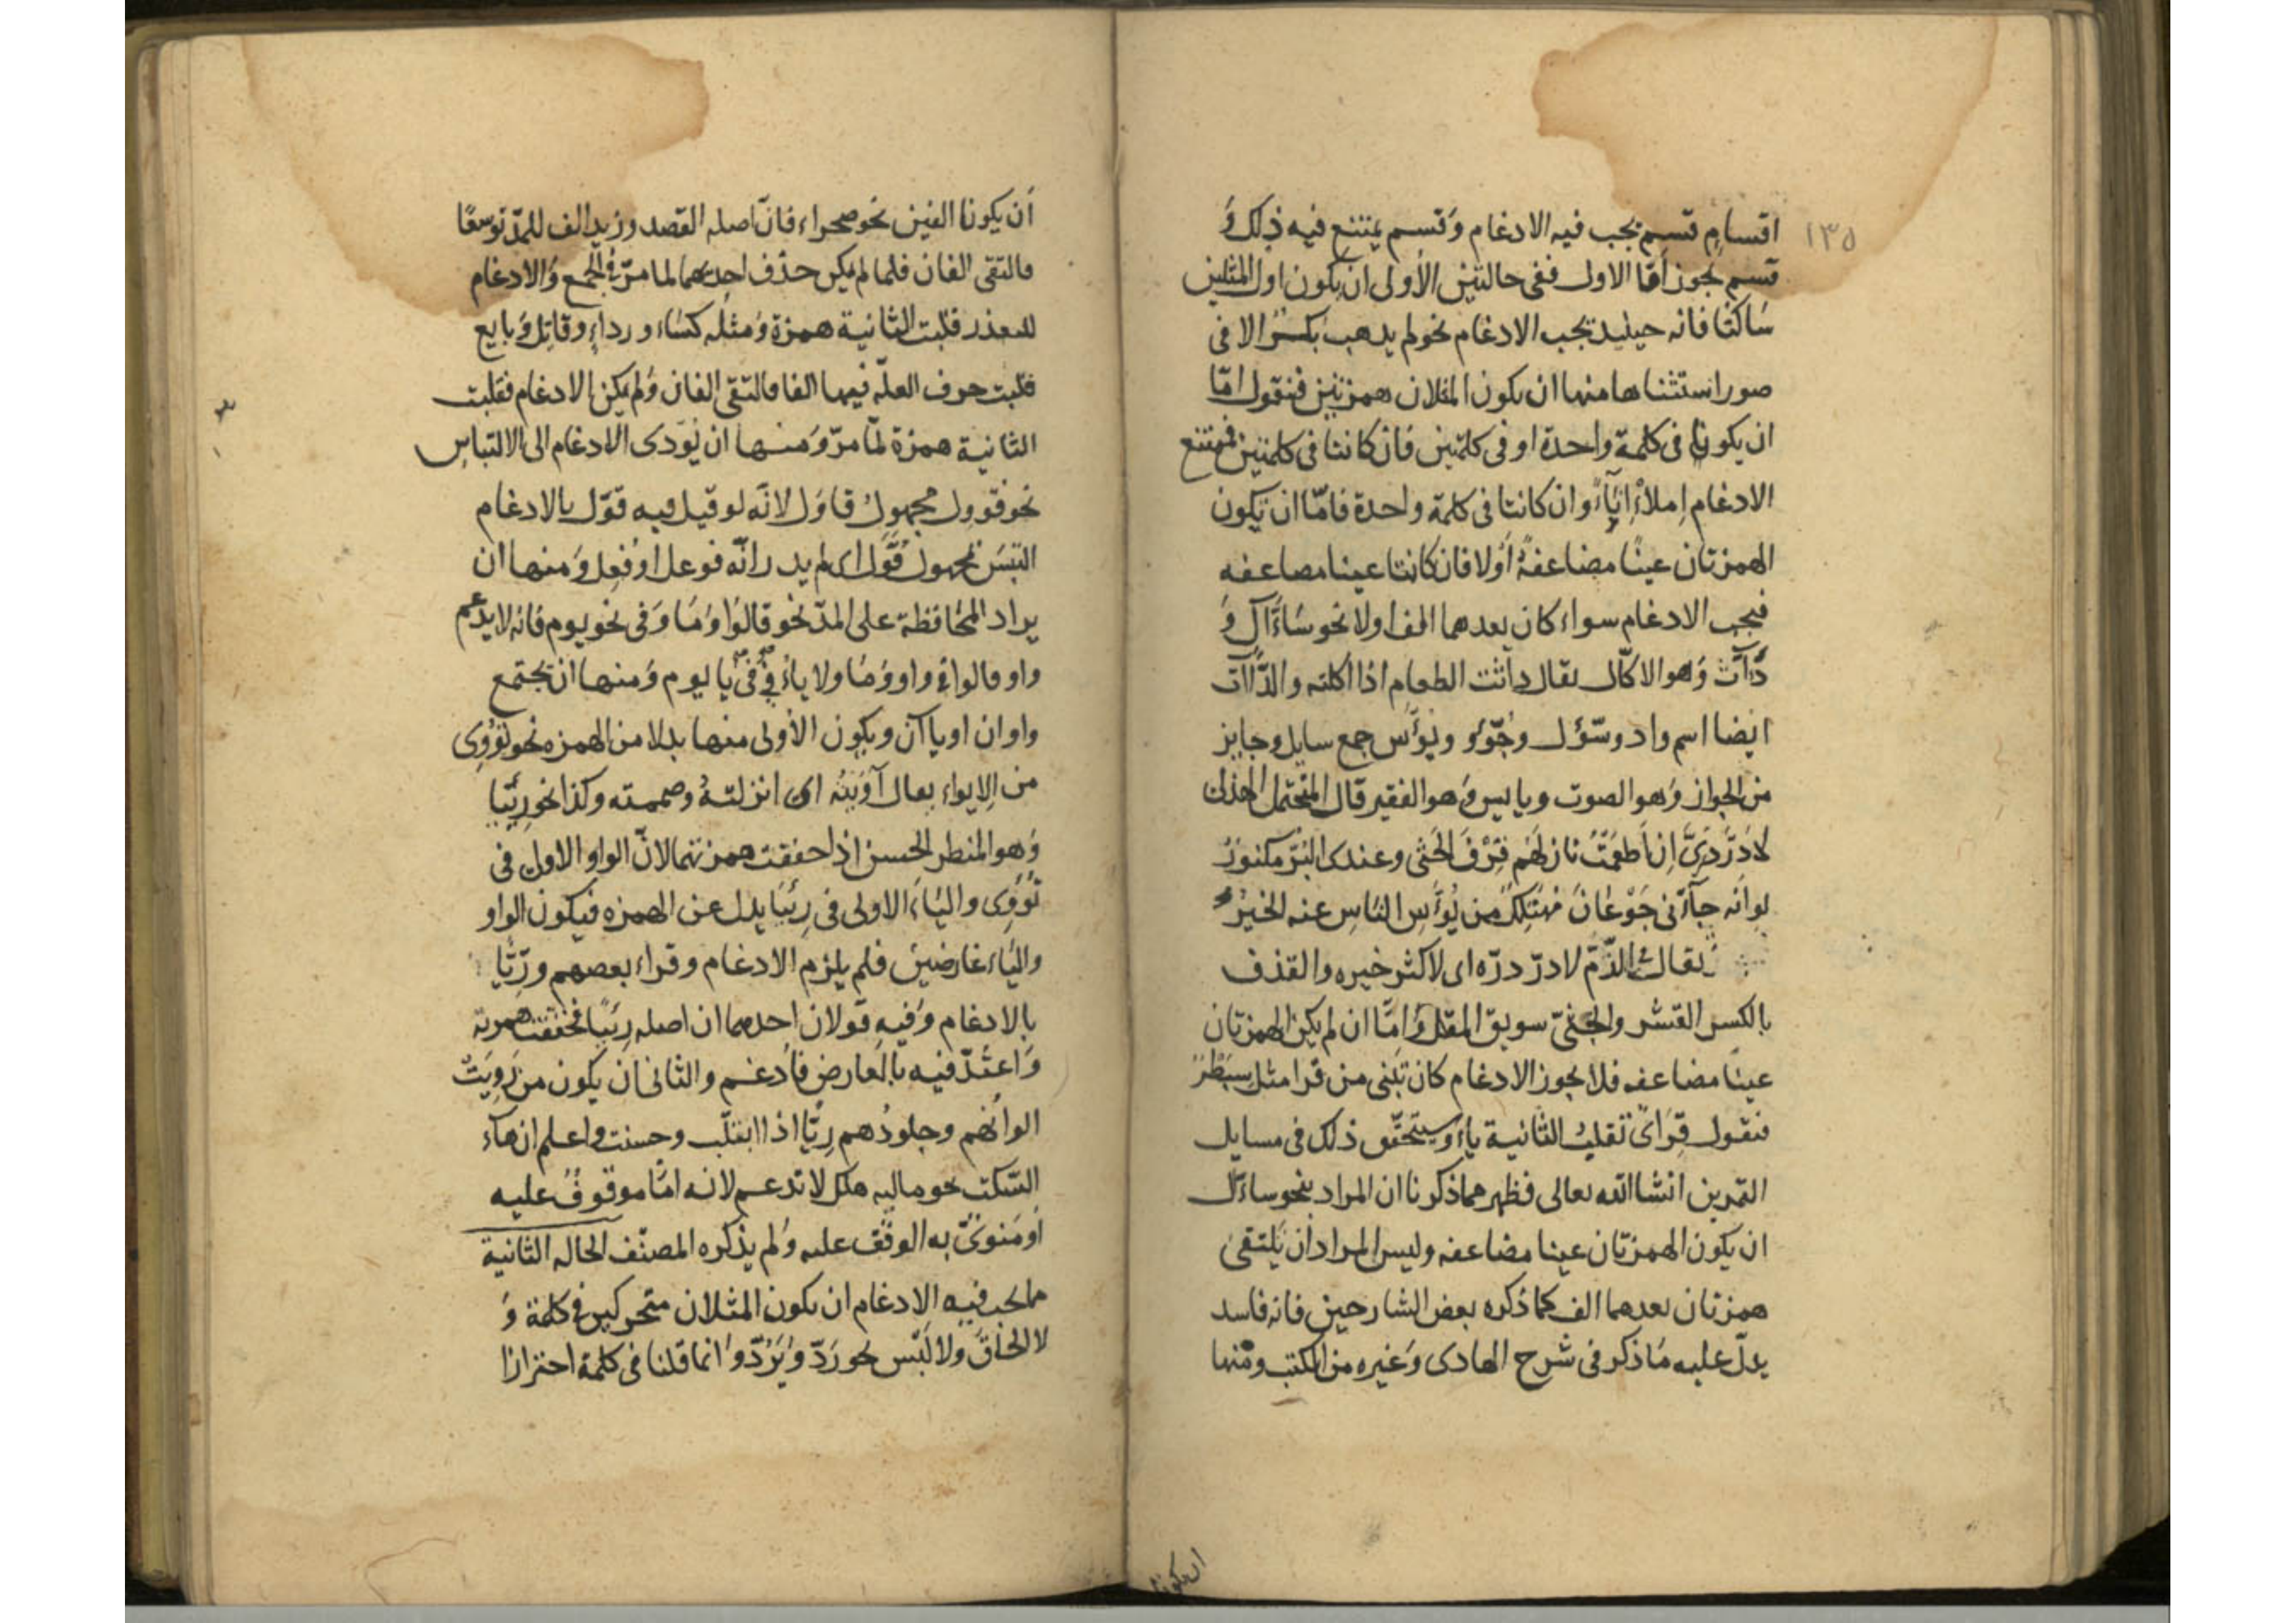 ١٣٥
اقسام قسم يجب فيه الادغام وَقسم يمتنع فيه ذلك وَ
قسم يجوز أمّا الاول ففى حالتين الأولى ان يكون اول المثلين
سَاكنا فانه حينيذ يجب الادغام نحو لم يذهب بكْر الا فى
صور استثناها منها ان يكون المثلان همزتين فنقول امّا
ان يكونا فى كلمة واحدة او فى كلمتين فان كانتا فى كلمتين فيمتنع
الادغام اِملاْ اِنَاءً وان كانتا فى كلمة واحدة فامّا ان تكون
الهمزتان عينًا مضاعفةً أوْلا فان كانتا عينا مضاعفه
فيجب الادغام سواء كان بعدهما الف اولا نحو سَأّآل وَ
دَأّآث وَهو الاكّال يقال دأثت الطعام اذا اكلته والدَّأّاث
ايضا اسم واد وسُؤّل وجُوّؤ وبُوَّس جمع سايل وجايز
من الجواز وَهو الصوت وبايس وَهو الفقير قال المتنخّل الهذلى
لا دَرَّ دَرِّىَ اِن اَطعَمْتُ نازلَهُم قِرْفَ الحَتِّى وعندى البُرّ مكنوزُ
لو انّه جآءنى جَوْعَانُ مُهتَلِكٌ من بُؤَّسِ النَّاسِ عنه الخيرُ
يقال فى الذّمّ لا درّ درّه اى لا كثر خيره والقذف
بالكسر القشر والحتىّ سويق المقل وَامّا ان لم يكن الهمزتان
عينًا مضاعفه فلا يجوز الادغام كان تبنى من قرا مثل سِبَطْرٍ
فنقول قِرَاىٌ تقلب الثانية ياءً وسيتحقّق ذلك فى مسايل
التمرين انشا الله تعالى فظهر مما ذكرنا ان المراد بنحو ساءّل
ان يكون الهمزتان عينا مضاعفه وليس المراد ان يلتقى
همزتان بعدهما الف كما ذكره بعض الشارحين فانه فاسد
يدلّ عليه مَا ذكر فى شرح الهادى وَغيره من الكتب ومنها
ان يكونا
أن يكونا الفين نحو صحراء فانّ اصله القصر وزيد الف للمدّ توسعًا
فالتقى الفان فلما لم يمكن حذف احديهما لما مرّ فى الجمع وَالادغام
للتعذر قلبت الثانية همزة وَمثله كسَاء ورداءٍ وقاتِل وَبايع
قلبت حرف العلّه فيهما الفا فالتقى الفان وَلم يمكن الادغام فقلبت
الثانية همزة لمّا مرّ وَمنها ان يُؤدى الادغام الى الالتباس
نحو قوول مجهول قاوَل لانّه لو قيل فيه قوّل بالادغام
التبسَ بمجهول قَوَّل اى لم يدر انّه فوعل او فُعِل وَمنها ان
يراد المحَافظة على المدّ نحو قالوُا وَمَا وَفى نحو يوم فانّه لا يدغم
واو قالوا فى واو وَمَا ولا ياءُ فى فى يا يوم وَمنها ان تجتمع
واوان او ياآن ويكون الأولى منها بدلا من الهمزه نحو تؤْوِى
من الِايواء يعال آوَيتُه اى انزلتهُ وضممته وكذا نحو رِيْيَا
وَهو المنظر الحسن اذا خففت همزتهما لانّ الواو الاولى فى
تُوْوِى واليَاءَ الاولى فى رِيْيَا بدل عن الهمزه فيكون الواو
واليَاء عَارضين فلم يلزم الادغام وقراء بعضهم ورِيّا
بالادغام وَفيه قولان احدهما ان اصله رِئيًا فخففت همزته
وَاعتُدّ فيه بالعَارض فأدغم والثانى ان يكون من رَوِيَتْ
الوانُهم وجلودُهم رِيّا اذا ابتلّت وحسنت واعلم ان هآء
السّكت نحو ماليه هلك لا تدغم لانه امّا موقوفٌ عليه
أوْ مَنوىٌّ به الوقْف عليه وَلم يذكره المصنّف الحاله الثانية
مما يجب فيه الادغام ان يكون المثلان متحركين فى كلمة وَ
لا الحَاقَ ولا لَبْس نحو رَدّ وَيَرُدّ وَانما قلنا فى كلمة احترازا